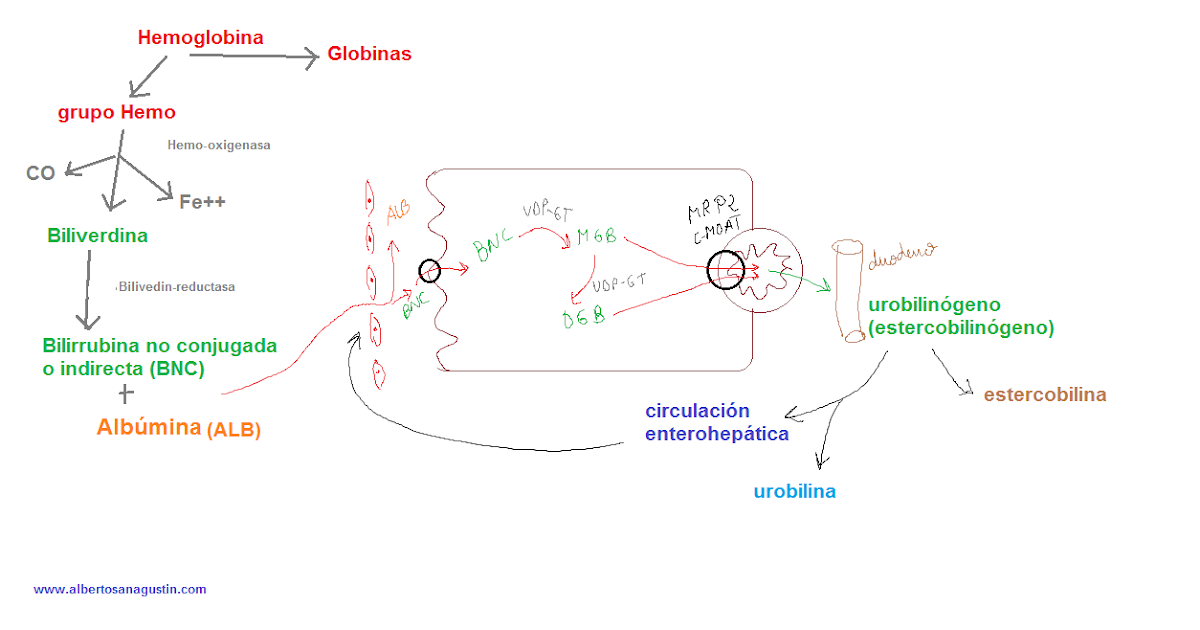 Hemoglobina
Globinas
grupo Hemo
Hemo-oxigenasa
CO
Fe++
Biliverdina
Bilivedin-reductasa
Bilirrubina no conjugada
o indirecta (BNC)
+
Albúmina (ALB)
ALB
BNC
BNC
UDP-GT
MGB
UDP-GT
DGB
MRP2
C-MOAT
duodeno
urobilinógeno
(estercobilinógeno)
estercobilina
circulación
enterohepática
urobilina
www.albertosanagustin.com